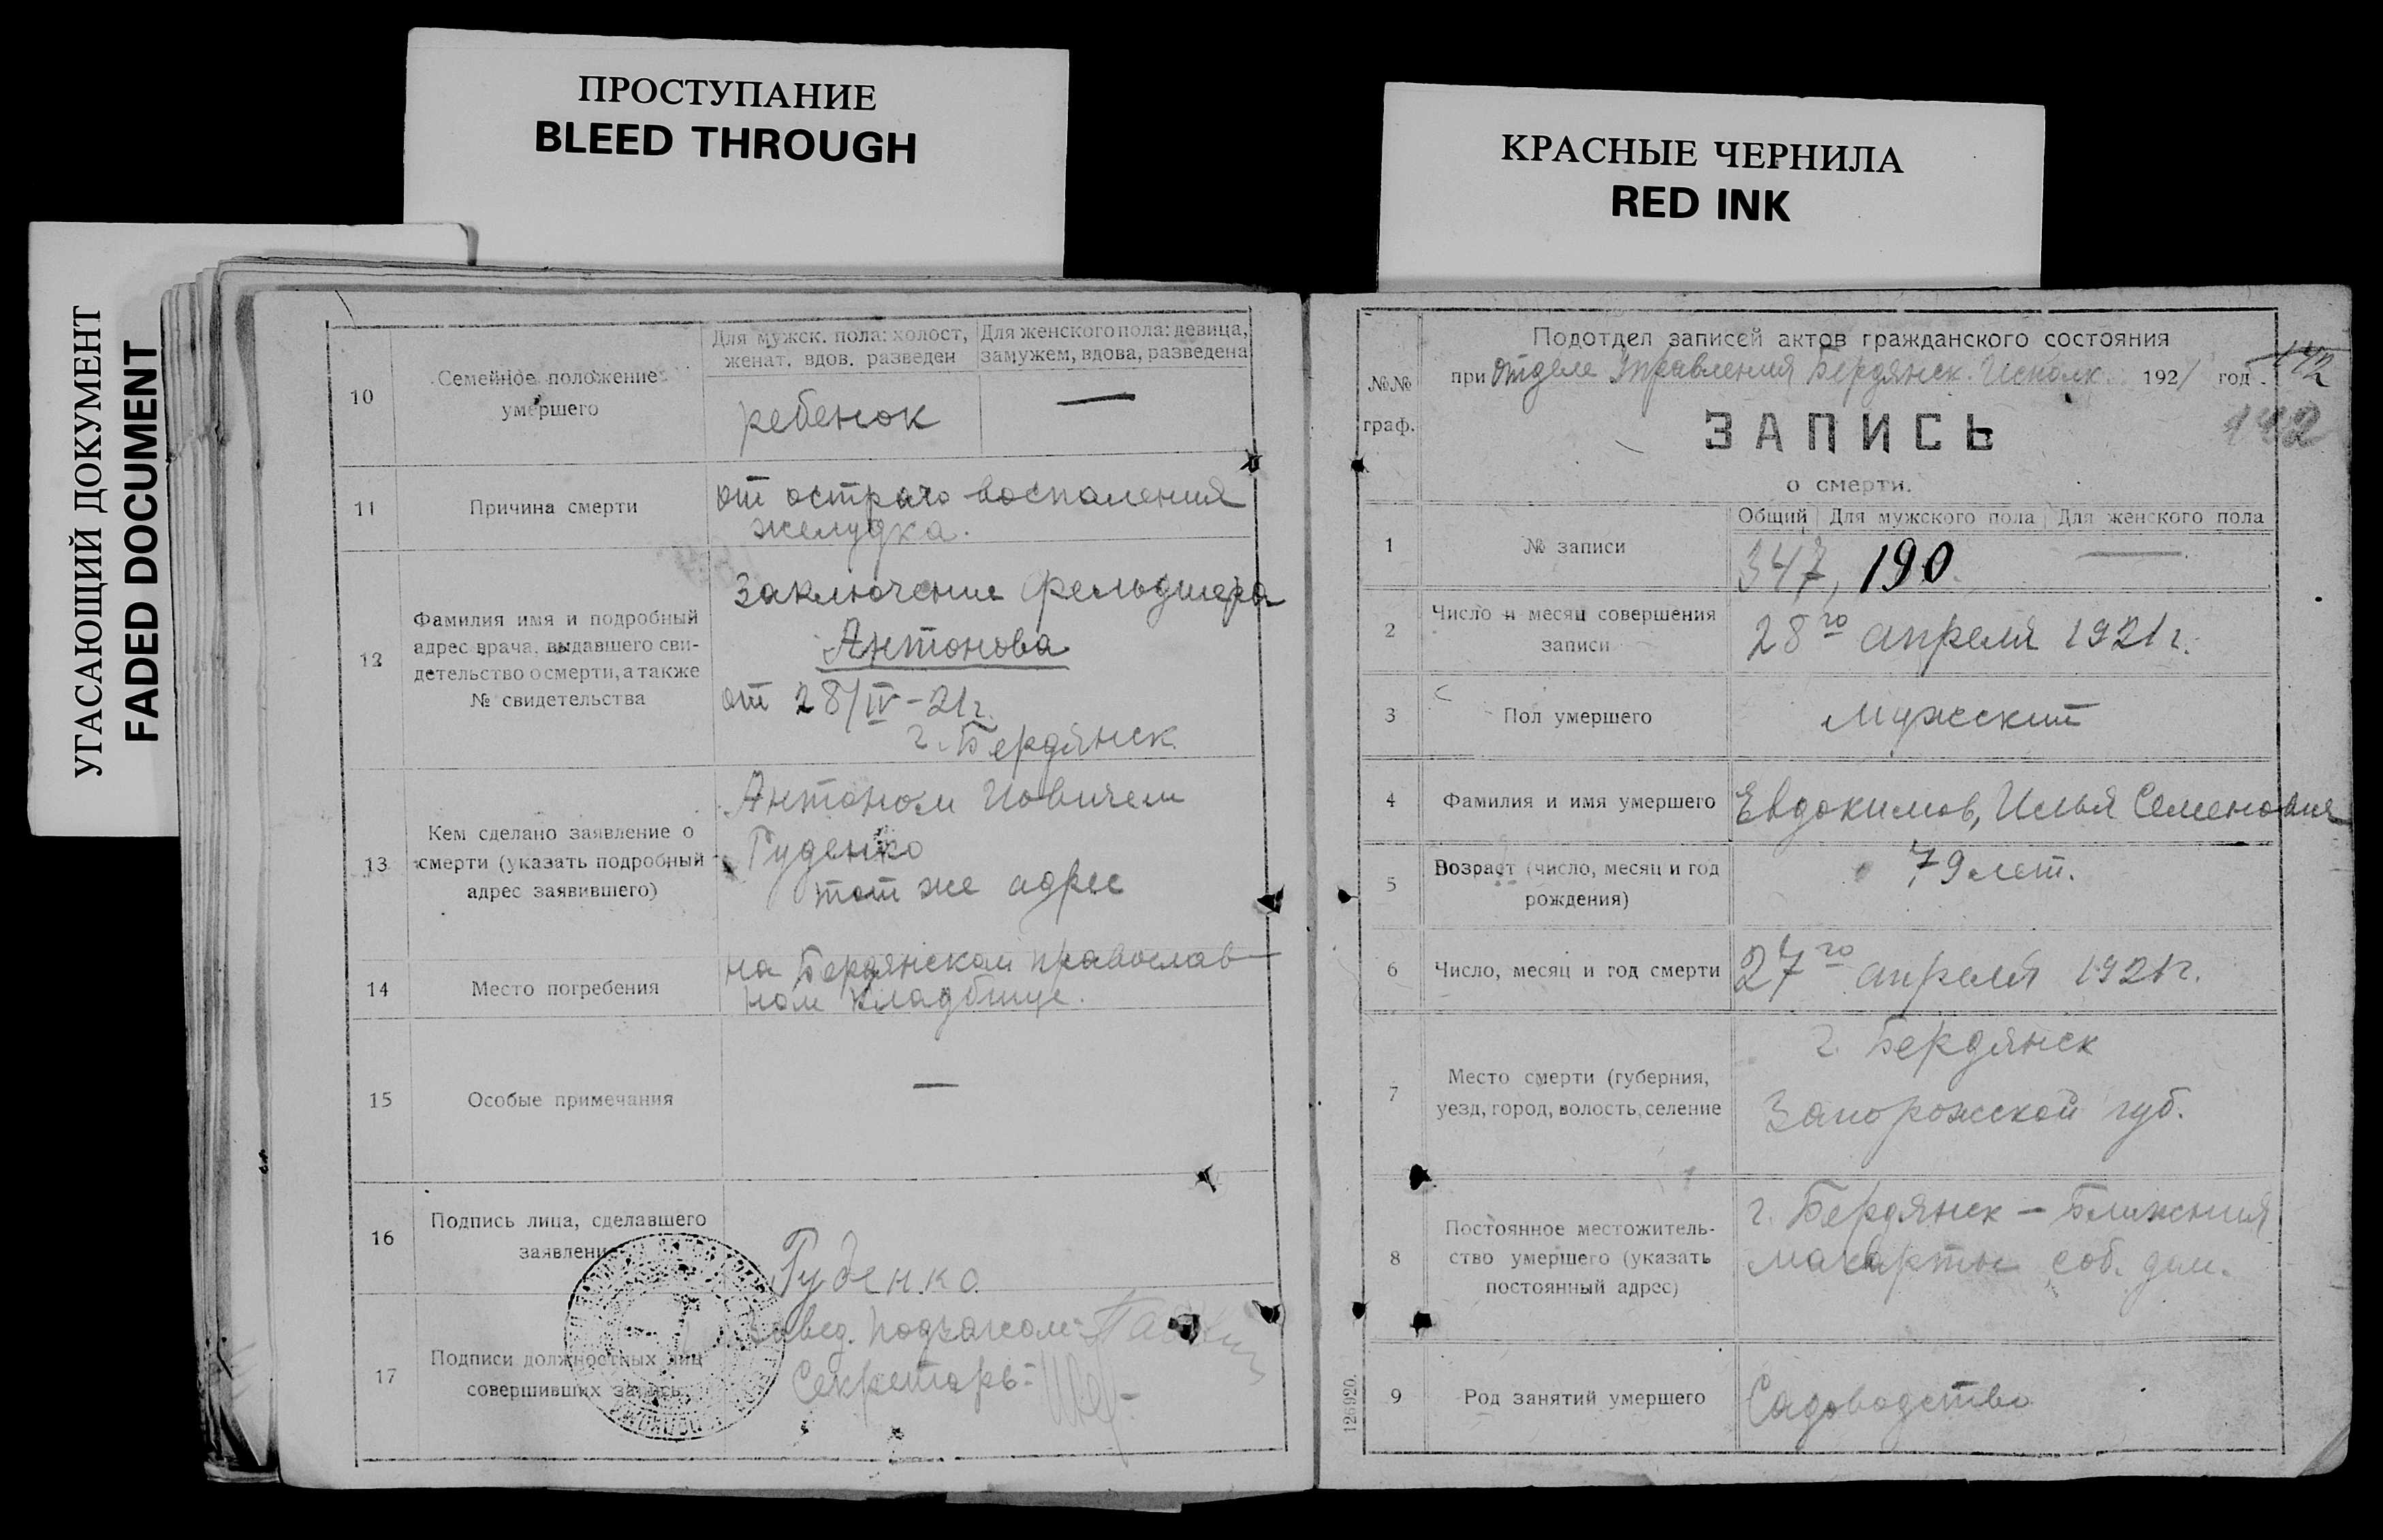 ПРОСТУПАНИЕ
BLEED THROUGH
КРАСНЫЕ ЧЕРНИЛА
RED INK
УГАСАЮЩИЙ ДОКУМЕНТ
FADED DOCUMENT
10
Семейное положение
умершего
Для мужск. пола: холост,
женат, вдов, разведен
Для женского пола: девица,
замужем, вдова, разведена
ребенок
—
11
Причина смерти
от острого воспаления
желудка.
12
Фамилия имя и подробный
адрес врача, выдавшего сви-
детельство о смерти, а также
№ свидетельства
Заключение фельдшера
Антонова
от 28/IV-21г.
г. Бердянск.
13
Кем сделано заявление о
смерти (указать подробный
адрес заявившего)
Антоном Иовичем
Руденко
тот же адрес
14
Место погребения
на Бердянском православ-
ном кладбище.
15
Особые примечания
—
16
Подпись лица, сделавшего
заявлени
Руденко
17
Подписи должностных лиц
совершивших запись
Завед. Подзагсом:
Секретарь:
№№
граф.
Подотдел записей актов гражданского состояния
при Отделе Управления Бердянск. Исполк. 1921 год.
142
142
ЗАПИСЬ
о смерти.
1
№ записи
Общий
Для мужского пола
Для женского пола
347, 190 —
2
Число и месяц совершения
записи
28го апреля 1921г.
3
Пол умершего
Мужский
4
Фамилия и имя умершего
Евдокимов, Илья Семенович
5
Возраст (число, месяц и год
рождения)
79 лет.
6
Число, месяц и год смерти
27го апреля 1921г.
7
Место смерти (губерния,
уезд, город, волость, селение
г. Бердянск
Запорожской губ.
8
Постоянное местожитель-
ство умершего (указать
постоянный адрес)
г. Бердянск — Ближния
макорты соб. дом.
9
Род занятий умершего
Садоводство
126920.